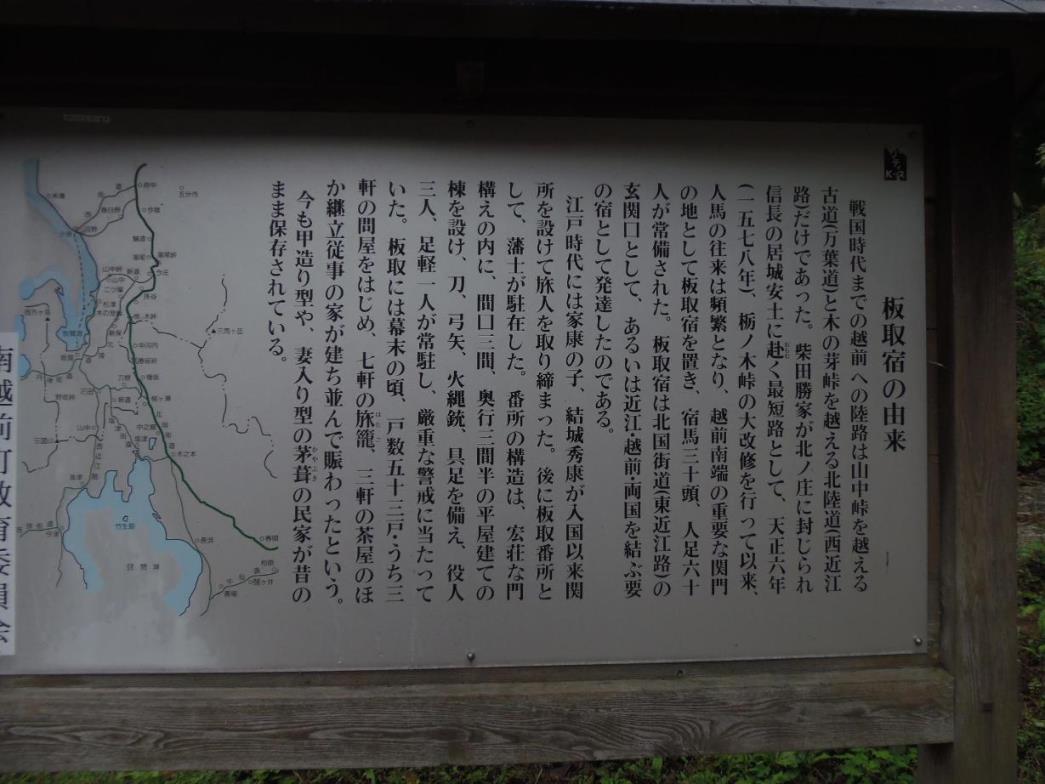 板取宿の由来
戦国時代までの越前への陸路は山中峠を越える
古道(万葉道)と木の芽峠を越える北陸道(西近江
路)だけであった。柴田勝家が北ノ庄に封じられ
信長の居城安土に赴く最短路として、天正六年
おもむ
(一五七八年)、栃ノ木峠の大改修を行って以来、
人馬の往来は頻繁となり、越前南端の重要な関門
の地として板取宿を置き、宿馬三十頭、人足六十
人が常備された。板取宿は北国街道(東近江路)の
玄関口として、あるいは近江・越前・両国を結ぶ要
の宿として発達したのである。
江戸時代には家康の子、結城秀康が入国以来関
所を設けて旅人を取り締まった。後に板取番所と
して、藩士が駐在した。番所の構造は、宏荘な門
構えの内に、間口三間、奥行三間半の平屋建ての
棟を設け、刀、弓矢、火縄銃、具足を備え、役人
三人、足軽一人が常駐し、厳重な警戒に当たって
いた。板取には幕末の頃、戸数五十三戸・うち三
軒の問屋をはじめ、七軒の旅籠、三軒の茶屋のほ
はたご
か継立従事の家が建ち並んで賑わったという。
今も甲造り型や、妻入り型の茅葺の民家が昔の
かやぶき
まま保存されている。
南越前町教育委員会
府中
今庄
三国ヶ岳
木之本
長浜
竹生島
琵琶湖
春照